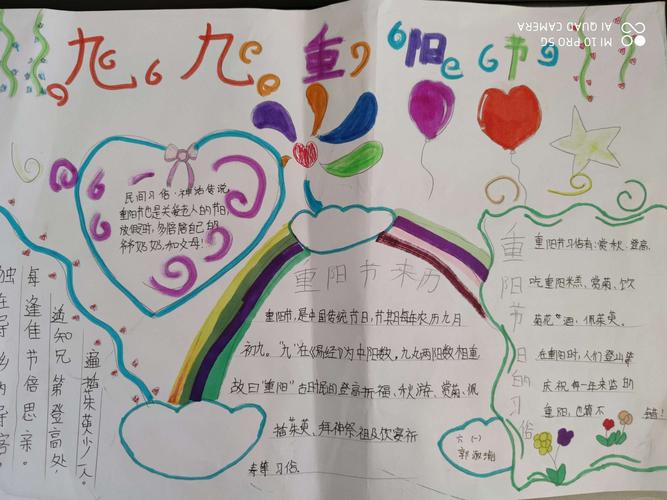 九九重阳节
MI 10 PRO 5G
AI QUAD CAMERA
民间习俗·神话传说
重阳节也是关爱老人的节日,
放假时,多陪陪自己的
爷爷奶奶,和父母!
独在异乡为异客。
每逢佳节倍思亲。
遥知兄弟登高处,
遍插茱萸少一人。
重阳节来历
重阳节,是中国传统节日,节期每年农历九月
初九。"九"在《易经》为中阳数,九九两阳数相重
故曰"重阳"古时民的登高祈福、秋游、赏菊、佩
插茱萸、拜神祭祖及饮宴祈
寿等习俗.
重阳节日的习俗
重阳节习俗有:赏秋、登高、
吃重阳米糕、赏菊、饮
菊花酒,佩茱萸。
在重阳时,人们登山
庆祝每一年来监的
重阳,也算不错!
六(一)
郭